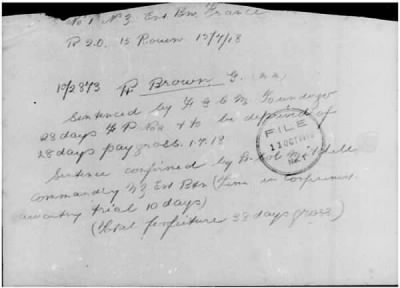 To 1 N.Z. Ent Bn France
R 20. 15 Rouen 12/7/18
10/2873 Pte Brown G. (N.Z.)
Sentenced by F G C M
28 days F P No & to be deprived of
28 days pay gross. 1.7.18
Sentence confirmed by Mitchell
commanding NZ Ent Btn (Time in confinement
awaiting trial 10 days)
(Total forfeiture 38 days gross)
FILE
11 OCT 1918